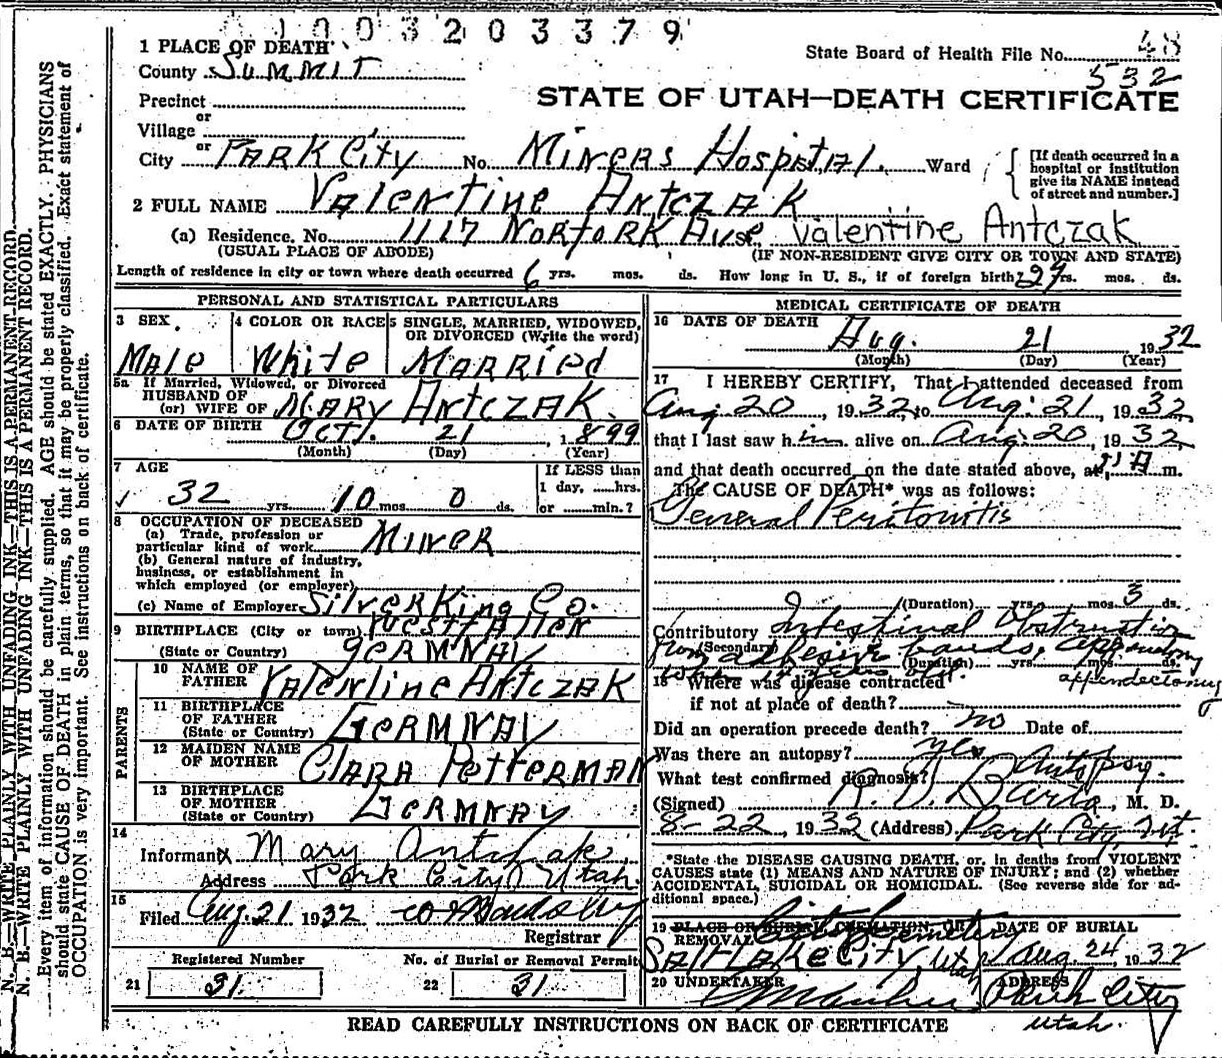 1003203379
1 PLACE OF DEATH
State Board of Health File No. 48
County Summit
532
Precinct
STATE OF UTAH—DEATH CERTIFICATE
or
Village
or
City Park City No. Miners Hospital. Ward
[If death occurred in a hospital or institution give its NAME instead of street and number.]
2 FULL NAME Valentine Antczak
(a) Residence. No. 1117 Norfork Ave. Valentine Antczak
(USUAL PLACE OF ABODE) (IF NON-RESIDENT GIVE CITY OR TOWN AND STATE)
Length of residence in city or town where death occurred 6 yrs. mos. ds. How long in U. S., if of foreign birth? 29 yrs. mos. ds.
PERSONAL AND STATISTICAL PARTICULARS
3 SEX Male
4 COLOR OR RACE White
5 SINGLE, MARRIED, WIDOWED, OR DIVORCED (Write the word) Married
5a If Married, Widowed, or Divorced
HUSBAND OF
(or) WIFE OF Mary Antczak.
6 DATE OF BIRTH Oct. 21, 1899
(Month) (Day) (Year)
7 AGE
32 yrs. 10 mos. 0 ds.
If LESS than 1 day, hrs. or min.?
8 OCCUPATION OF DECEASED
(a) Trade, profession or particular kind of work Miner
(b) General nature of industry, business, or establishment in which employed (or employer)
(c) Name of Employer Silver King Co.
9 BIRTHPLACE (City or town)
(State or Country) Germnay
PARENTS
10 NAME OF FATHER Valentine Antczak
11 BIRTHPLACE OF FATHER (State or Country) Germnay
12 MAIDEN NAME OF MOTHER Clara Petterman
13 BIRTHPLACE OF MOTHER (State or Country) Germnay
14
Informant Mary Antczak
Address Park City Utah.
15
Filed Aug. 21 1932
Registrar
Registered Number
21 31
No. of Burial or Removal Permit
22 31
MEDICAL CERTIFICATE OF DEATH
16 DATE OF DEATH Aug. 21 1932
(Month) (Day) (Year)
17 I HEREBY CERTIFY, That I attended deceased from
Aug 20, 1932, to Aug. 21, 1932
that I last saw him alive on Aug. 20, 1932,
and that death occurred on the date stated above, at m.
The CAUSE OF DEATH* was as follows:
General Peritonitis
(Duration) yrs. mos. 3 ds.
Contributory Intestinal Obstruction
(Secondary) from adhesive bands,
(Duration) yrs. mos. ds.
appendectomy
18 Where was disease contracted
if not at place of death?
Did an operation precede death? no Date of
Was there an autopsy? yes
What test confirmed diagnosis? Autopsy.
(Signed) M. D.
8-22, 1932 (Address) Park City, Ut.
*State the DISEASE CAUSING DEATH, or, in deaths from VIOLENT
CAUSES state (1) MEANS AND NATURE OF INJURY; and (2) whether
ACCIDENTAL, SUICIDAL OR HOMICIDAL. (See reverse side for ad-
ditional space.)
19 PLACE OR BURIAL, CREMATION, OR REMOVAL City Cemetery
Salt Lake City, Utah
DATE OF BURIAL
Aug. 24, 1932
20 UNDERTAKER
ADDRESS
Park City
Utah.
READ CAREFULLY INSTRUCTIONS ON BACK OF CERTIFICATE
N. B.—WRITE PLAINLY WITH UNFADING INK—THIS IS A PERMANENT RECORD.
N. B.—WRITE PLAINLY WITH UNFADING INK—THIS IS A PERMANENT RECORD.
Every item of information should be carefully supplied. AGE should be stated EXACTLY. PHYSICIANS
should state CAUSE OF DEATH in plain terms, so that it may be properly classified. Exact statement of
OCCUPATION is very important. See instructions on back of certificate.